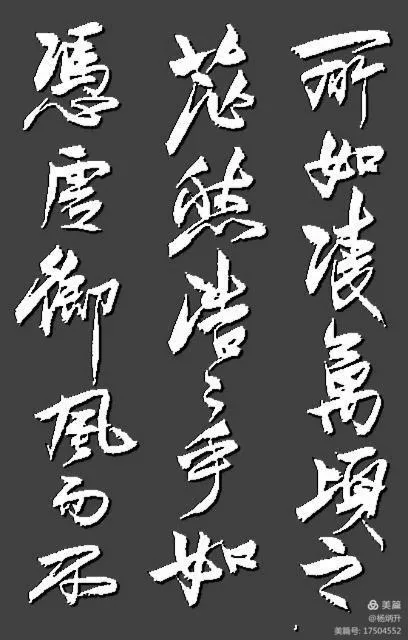 所如凌萬頃之
茫然浩〻乎如
憑虛御風而不
美篇
@杨炳升
美篇号: 17504552